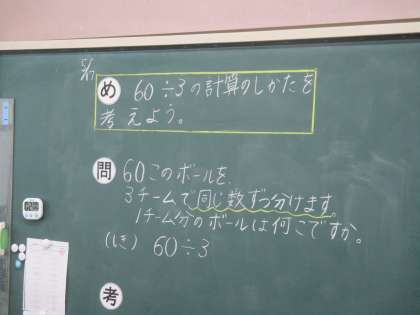 5/17
め 60÷3の計算のしかたを
考えよう。
問 60このボールを、
3チームで同じ数ずつ分けます。
1チーム分のボールは何こですか。
(しき) 60÷3
考